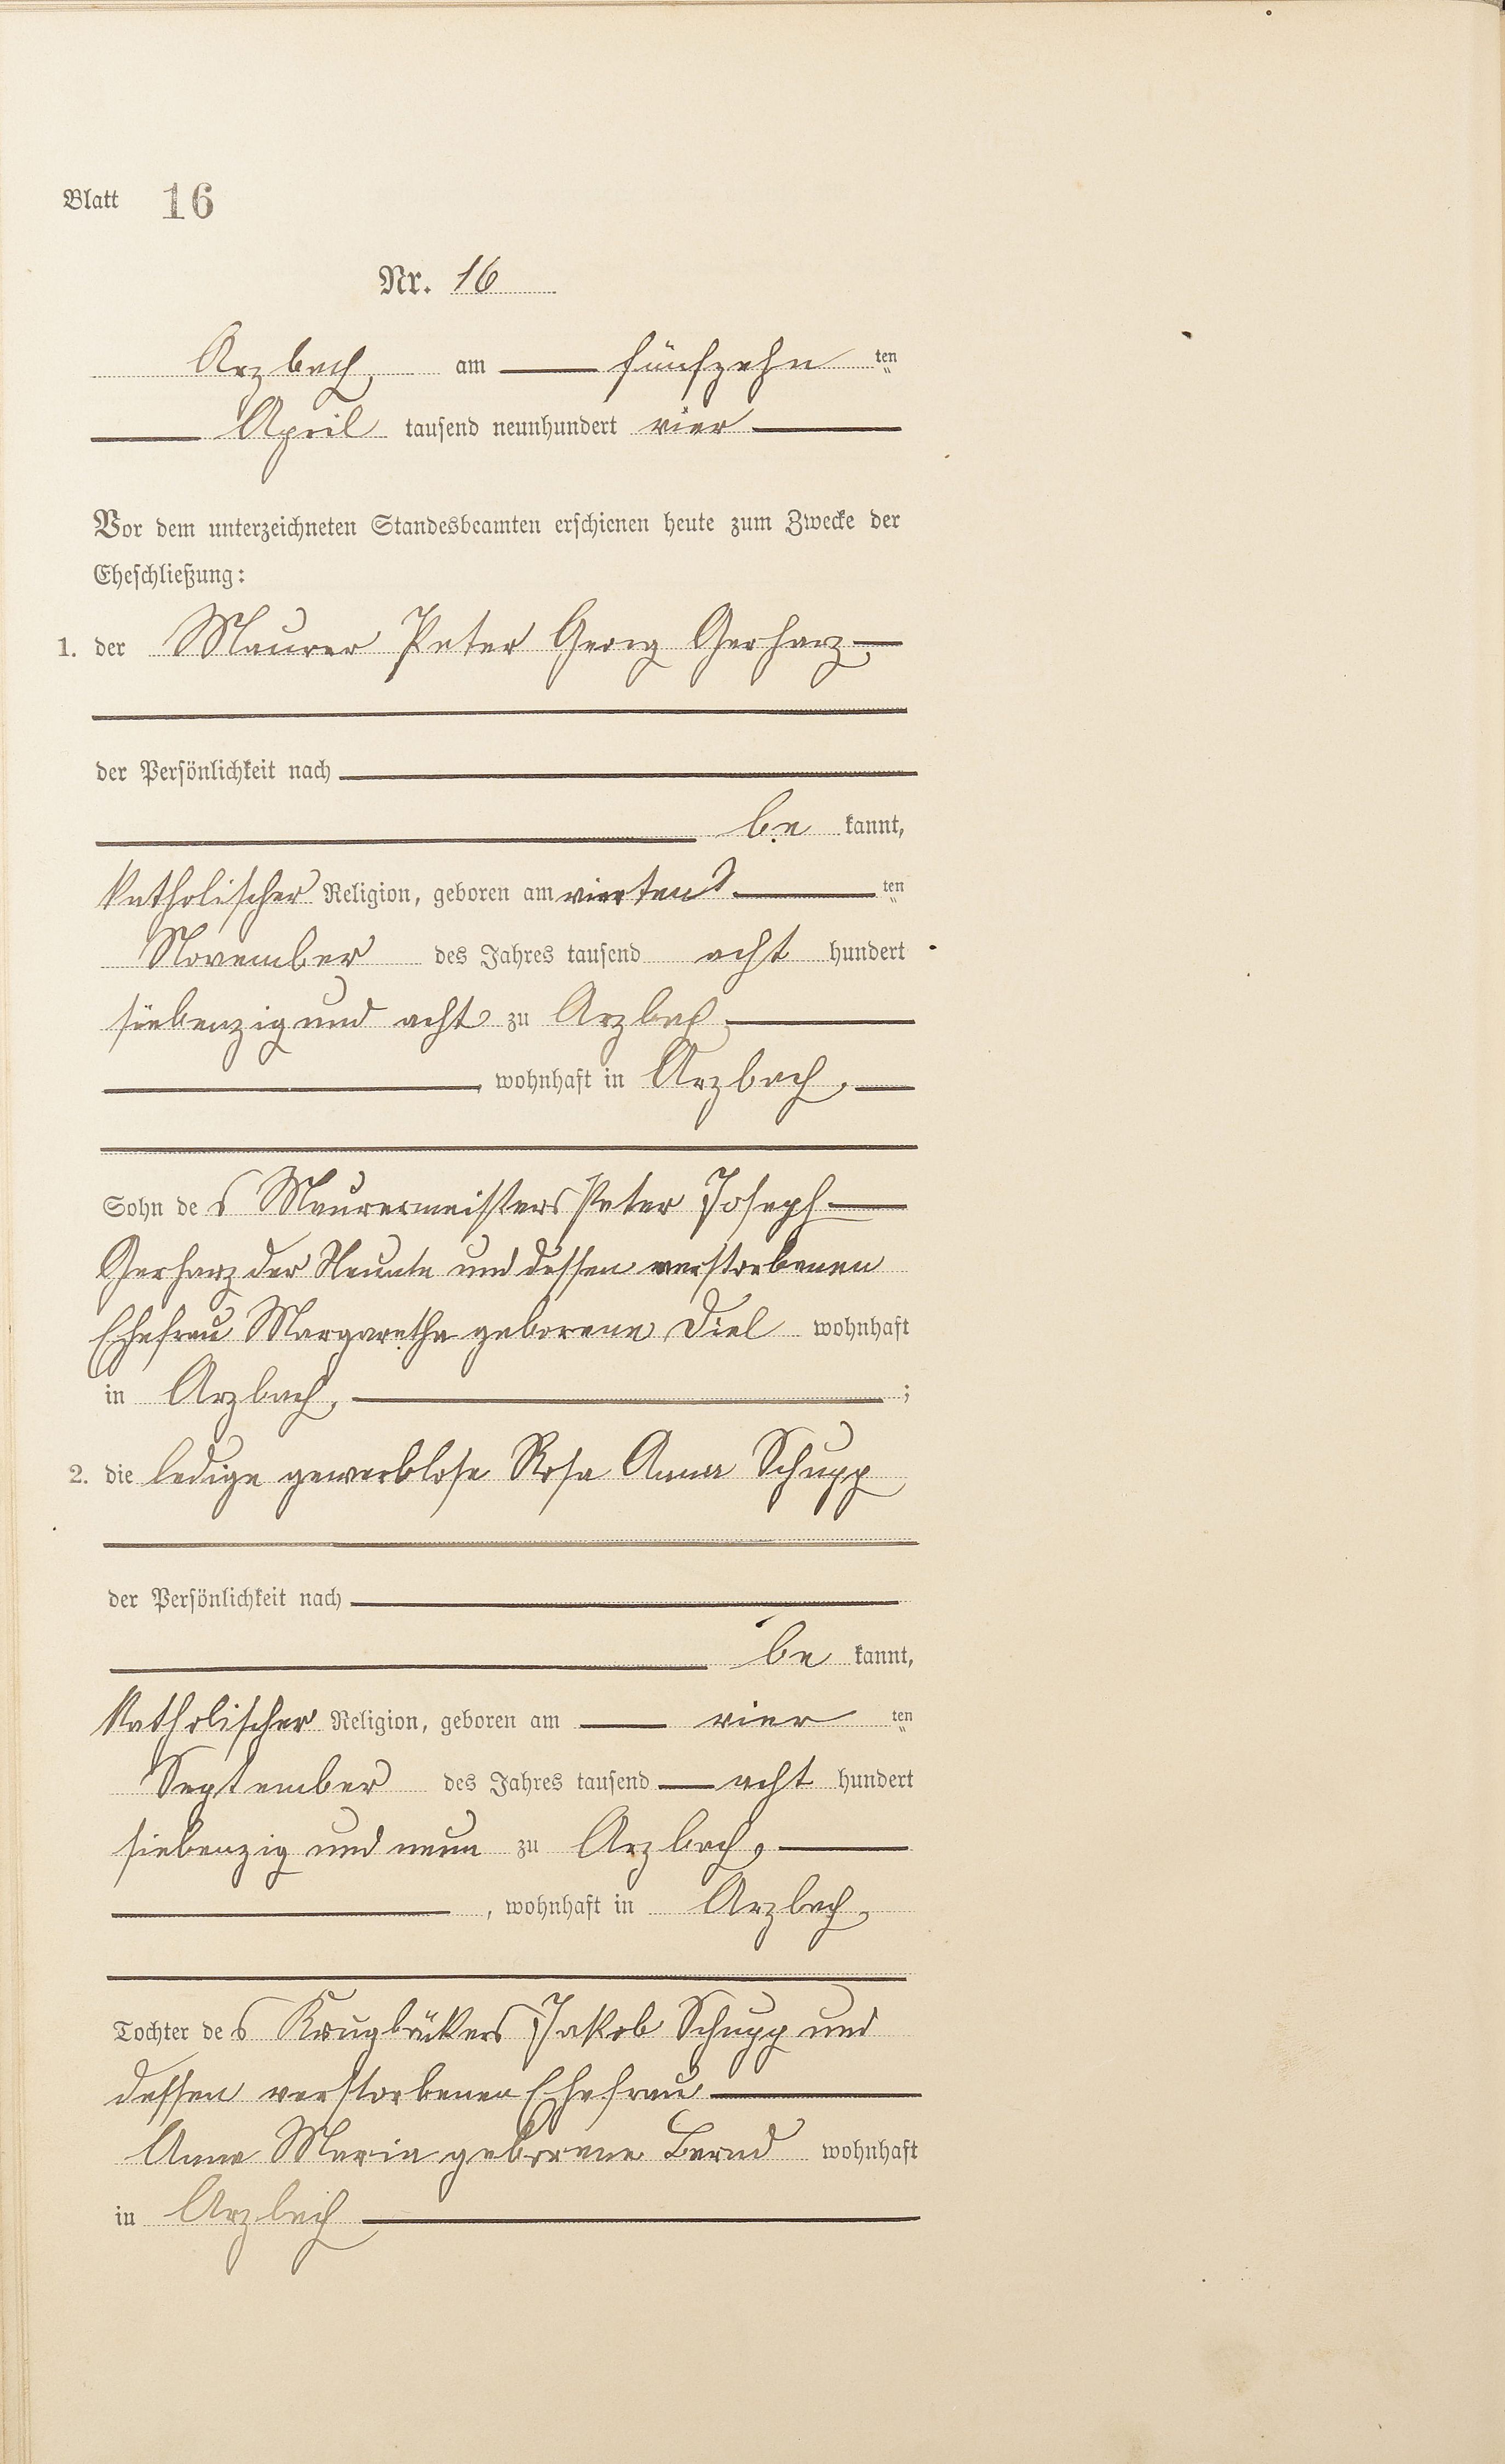 Blatt 16
Nr. 16
Arzbach, am fünfzehn ten
April tausend neunhundert vier
Vor dem unterzeichneten Standesbeamten erschienen heute zum Zwecke der
Eheschließung:
1. der Maurer Peter Georg Gerharz,
der Persönlichkeit nach
be kannt,
katholischer Religion, geboren am vierten ten
November des Jahres tausend acht hundert
siebenzig und acht zu Arzbach,
, wohnhaft in Arzbach,
Sohn des Maurermeisters Peter Joseph
Gerharz der Neunte und dessen verstorbenen
Ehefrau Margaretha geborene Diel wohnhaft
in Arzbach, ;
2. die ledige gewerblose Rosa Anna Schupp
der Persönlichkeit nach
be kannt,
katholischer Religion, geboren am vier ten
September des Jahres tausend acht hundert
siebenzig und neun zu Arzbach,
, wohnhaft in Arzbach,
Tochter des Krugbäckers Jakob Schupp und
dessen verstorbenen Ehefrau
Anna Maria geborene Bernd wohnhaft
in Arzbach